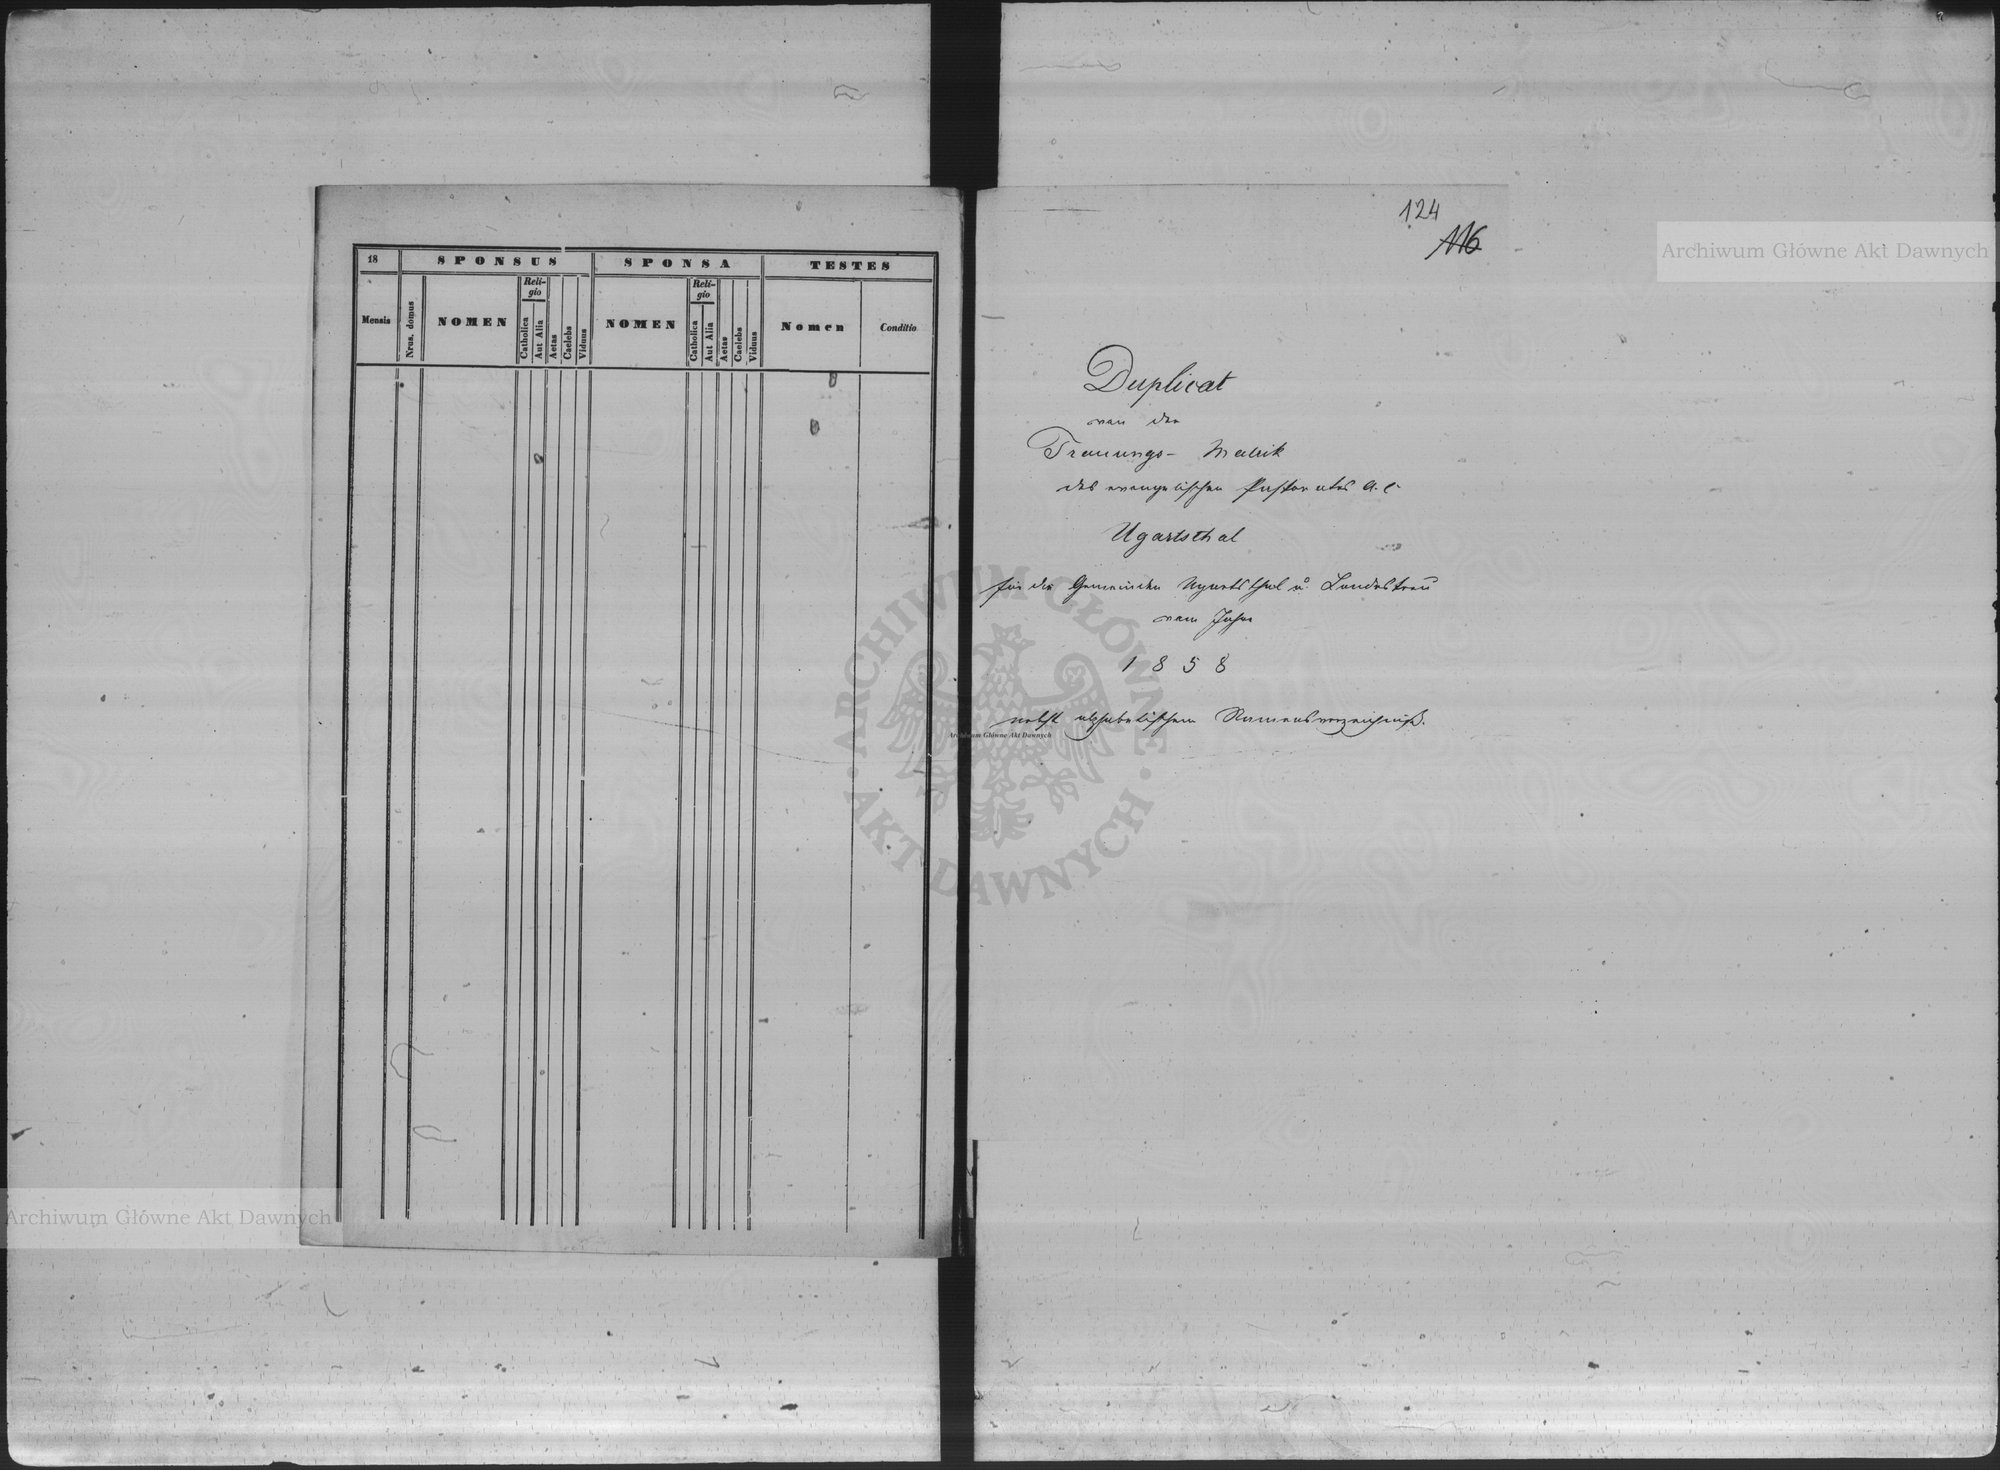 18
SPONSUS
SPONSA
TESTES
Mensis
Nrus. domus
NOMEN
Reli-
gio
Catholica
Aut Alia
Aetas
Caelebs
Viduus
NOMEN
Reli-
gio
Catholica
Aut Alia
Aetas
Caelebs
Viduus
Nomen
Conditio
124
116
Duplicat
von der
Trauungs- Matrik
des evangelischen Pastorates A. C.
Ugartsthal
für die Gemeinden Ugartsthal u. Landestreu
vom Jahre
1858
nebst alphabetischem Namensverzeichniß.
Archiwum Główne Akt Dawnych
ARCHIWUM GŁÓWNE
AKT DAWNYCH
Archiwum Główne Akt Dawnych
Archiwum Główne Akt Dawnych